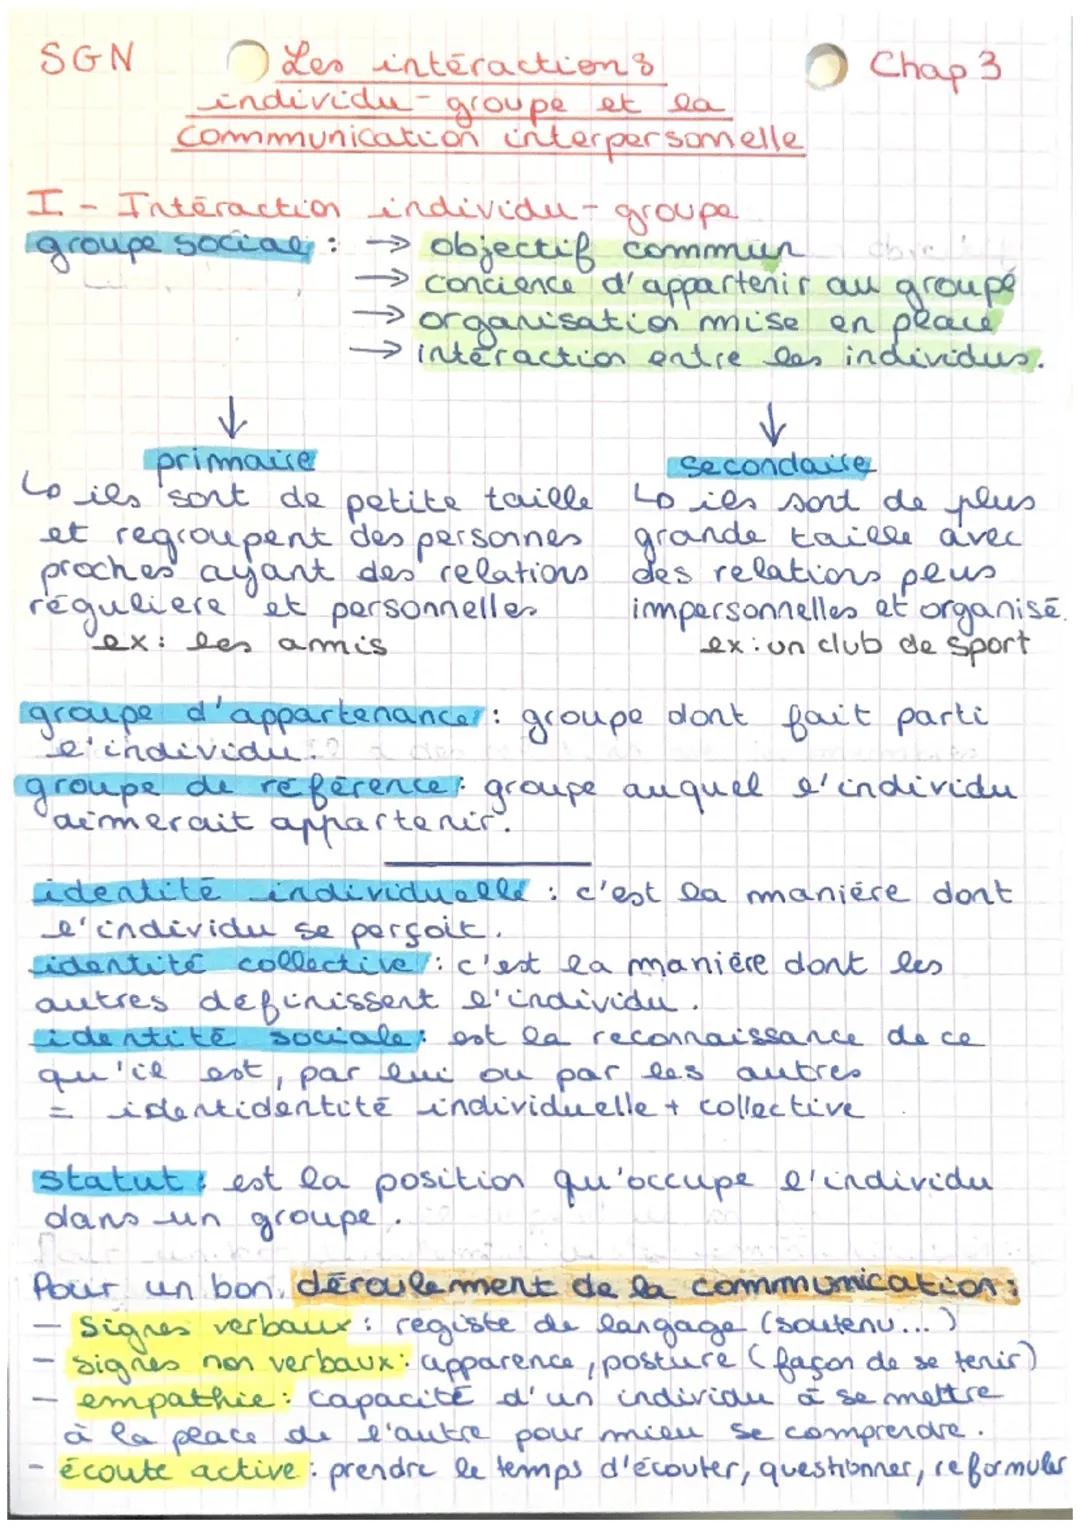 SGN
Les intéractions
Chap 3
individu-groupe et la
communication interpersonnelle
I - Intéraction individu-groupe
groupe social : → objectif commun
→ concience d'appartenir au groupé
→ organisation mise en place
→ intéraction entre les individus.
↓
primaire
↳ ils sont de petite taille
et regroupent des personnes
proches ayant des relations
réguliere et personnelles
ex: les amis
↓
secondaire
↳ ils sont de plus
grande taille avec
des relations plus
impersonnelles et organisé.
ex: un club de sport
groupe d'appartenance : groupe dont fait parti
l'individu.
groupe de référence : groupe auquel l'individu
aimerait appartenir.
identité individuelle : c'est la manière dont
l'individu se perçoit.
identité collective : c'est la manière dont les
autres definissent l'individu.
identité sociale : est la reconnaissance de ce
qu'il est, par lui ou par les autres
= identidentité individuelle + collective
statut : est la position qu'occupe l'individu
dans un groupe.
Pour un bon déroulement de la communication :
- Signes verbaux : registe de langage (soutenu...)
- signes non verbaux : apparence, posture (façon de se tenir)
- empathie : capacité d'un individu à se mettre
à la place de l'autre pour mieu se comprendre.
- écoute active : prendre le temps d'écouter, questionner, reformuler